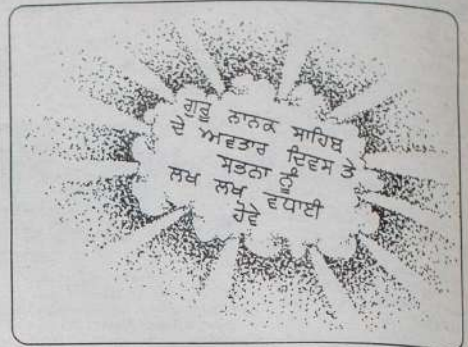 ਗੁਰੂ ਨਾਨਕ ਸਾਹਿਬ
ਦੇ ਅਵਤਾਰ ਦਿਵਸ ਤੇ
ਸਭਨਾ ਨੂੰ
ਲਖ ਲਖ ਵਧਾਈ
ਹੋਵੇ